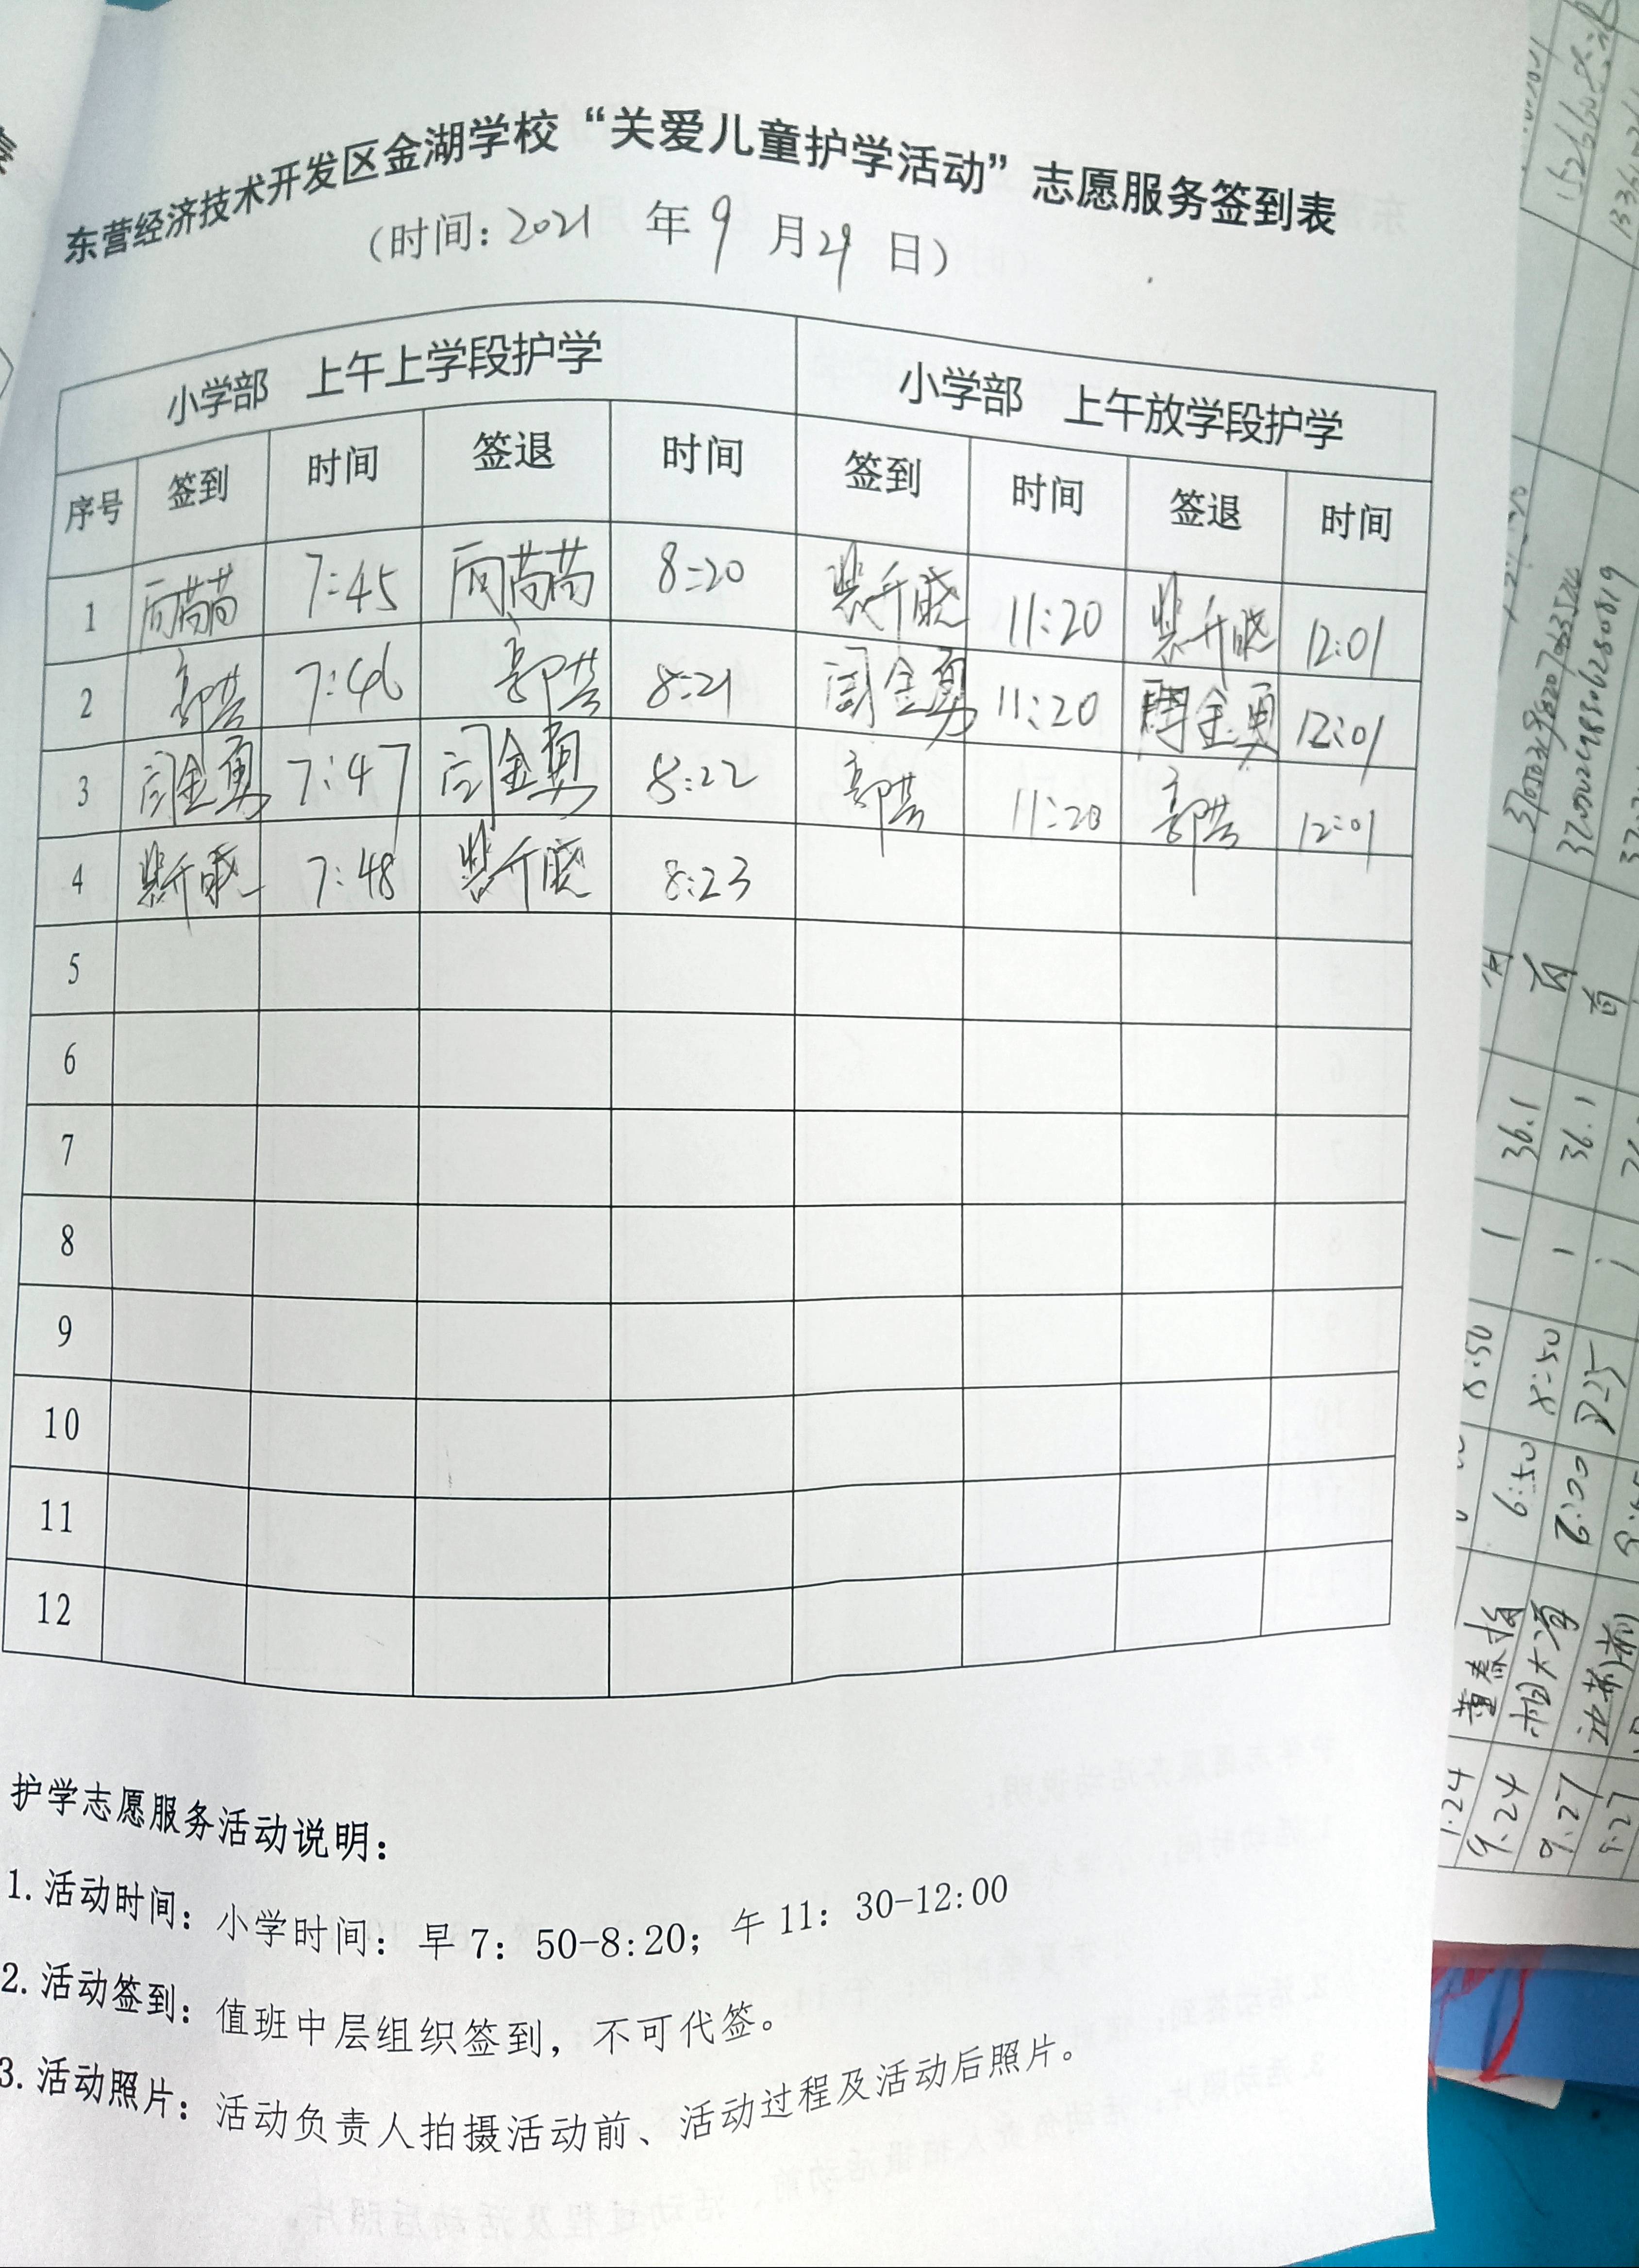 东营经济技术开发区金湖学校“关爱儿童护学活动”志愿服务签到表
（时间：2021 年 9 月 29 日）
小学部 上午上学段护学 小学部 上午放学段护学
序号 签到 时间 签退 时间 签到 时间 签退 时间
1 7:45 8:20 裴升晓 11:20 裴升晓 12:01
2 郭芸 7:46 郭芸 8:21 闫金勇 11:20 闫金勇 12:01
3 闫金勇 7:47 闫金勇 8:22 郭芸 11:20 郭芸 12:01
4 裴升晓 7:48 裴升晓 8:23
5
6
7
8
9
10
11
12
护学志愿服务活动说明：
1.活动时间：小学时间：早7：50-8:20；午11：30-12:00
2.活动签到：值班中层组织签到，不可代签。
3.活动照片：活动负责人拍摄活动前、活动过程及活动后照片。
9.24 6:50 8:50 1 36.1
9.27 1 36.1